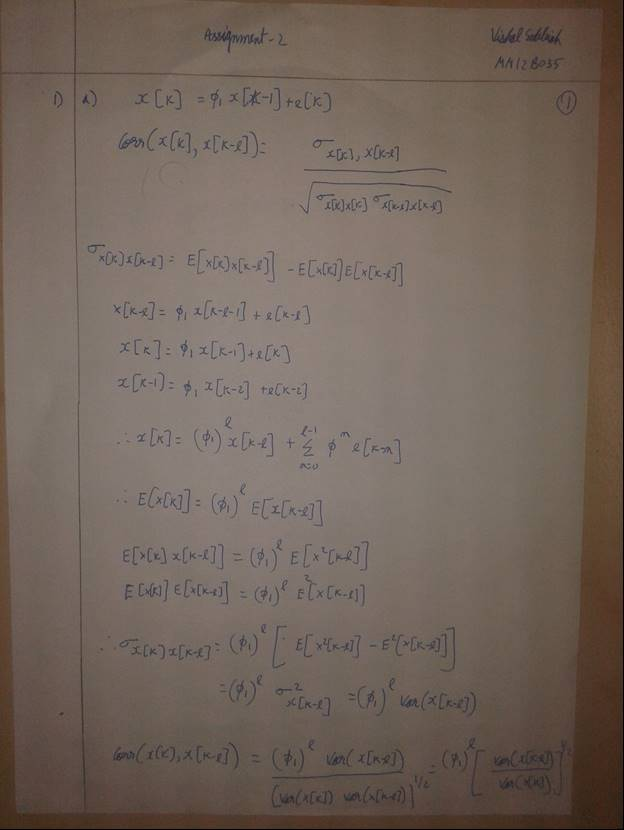 Assignment-2
Vishal Subbiah
MM12B035
1) a) x[k] = ϕ₁ x[k-1] + e[k]
①
Corr(x[k], x[k-l]) = σ_{x[k], x[k-l]} / √(σ_{x[k]x[k]} σ_{x[k-l]x[k-l]})
σ_{x[k]x[k-l]} = E[x[k]x[k-l]] - E[x[k]]E[x[k-l]]
x[k-l] = ϕ₁ x[k-l-1] + e[k-l]
x[k] = ϕ₁ x[k-1] + e[k]
x[k-1) = ϕ₁ x[k-2] + e[k-2]
∴ x[k] = (ϕ₁)^l x[k-l] + Σ_{n=0}^{l-1} ϕ^n e[k-n]
∴ E[x[k]] = (ϕ₁)^l E[x[k-l]]
E[x[k) x[k-l]] = (ϕ₁)^l E[x²[k-l]]
E[x[k]] E[x[k-l]] = (ϕ₁)^l E²[x[k-l]]
∴ σ_{x[k] x[k-l]} = (ϕ₁)^l [E[x²[k-l]] - E²[x[k-l]]]
= (ϕ₁)^l σ²_{x[k-l]} = (ϕ₁)^l var(x[k-l])
Corr(x[k), x[k-l]) = (ϕ₁)^l var(x[k-l]) / [var(x[k]) var(x[k-l])]^{1/2} = (ϕ₁)^l [var(x[k-l]) / var(x[k])]^{1/2}